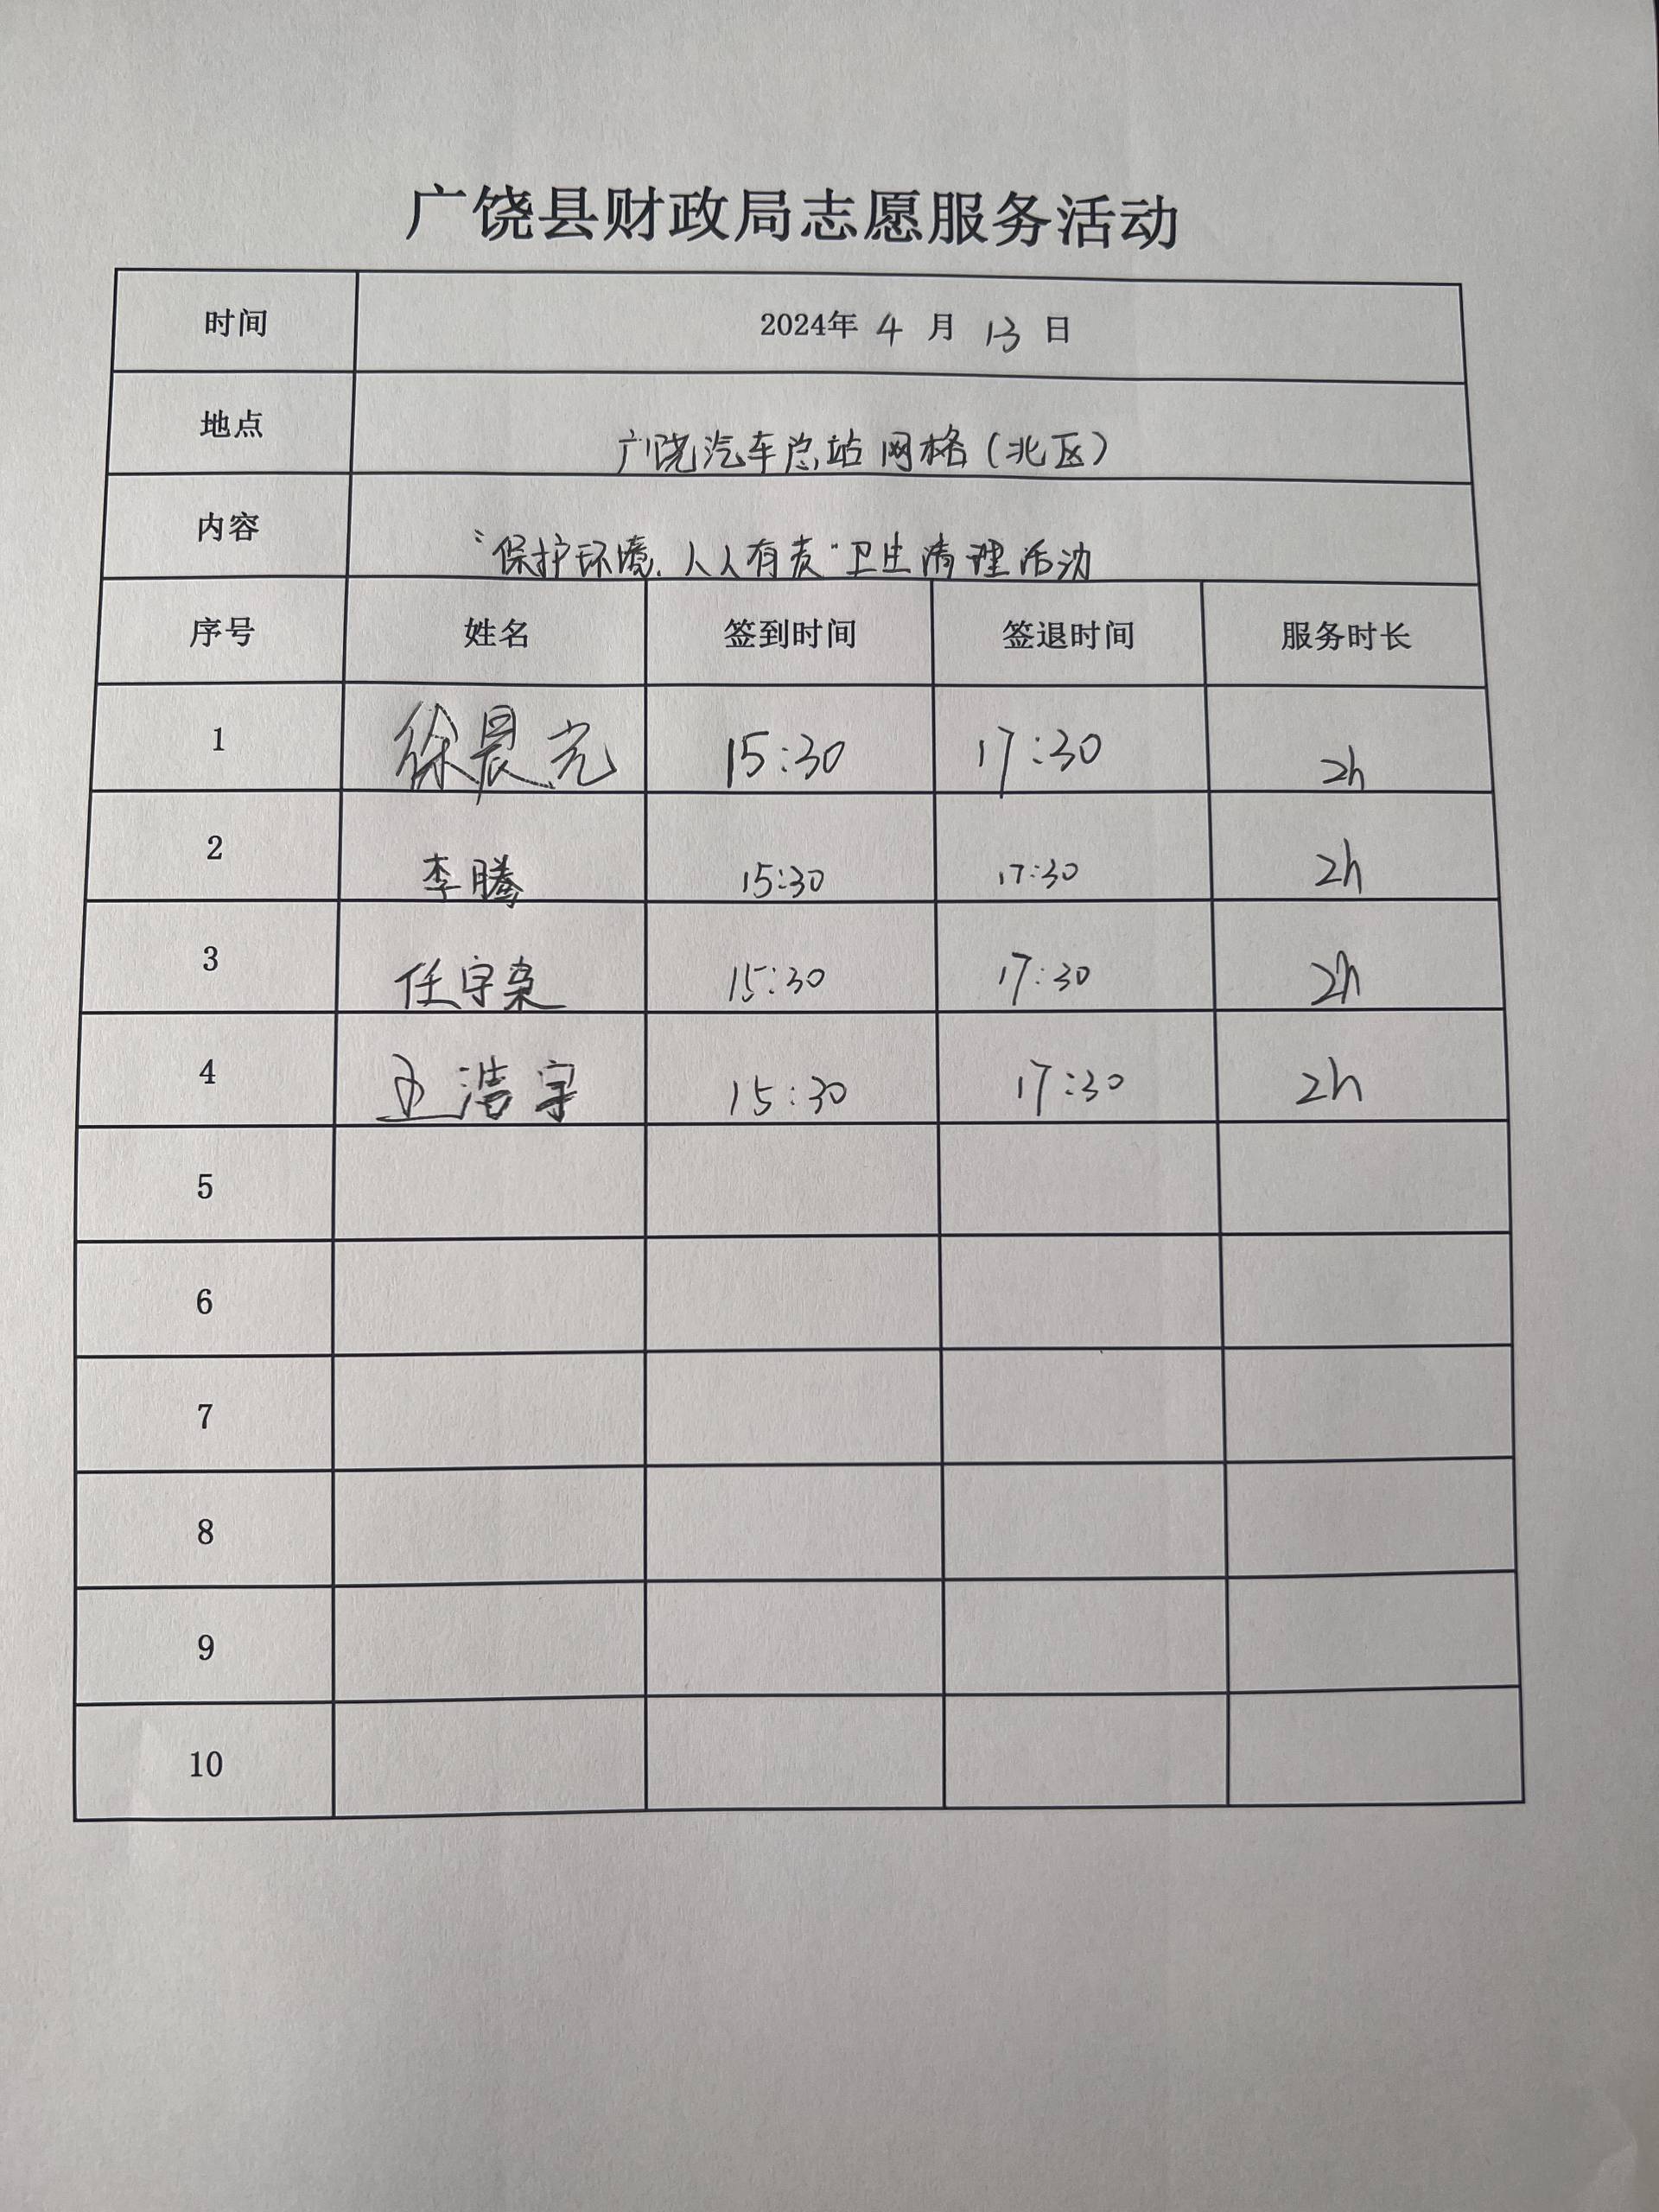 广饶县财政局志愿服务活动
时间 2024年 4 月 13 日
地点 广饶汽车总站网格（北区）
内容 “保护环境、人人有责”卫生清理活动
序号 姓名 签到时间 签退时间 服务时长
1 徐晨光 15:30 17:30 2h
2 李腾 15:30 17:30 2h
3 任宇 15:30 17:30 2h
4 王浩宇 15:30 17:30 2h
5
6
7
8
9
10